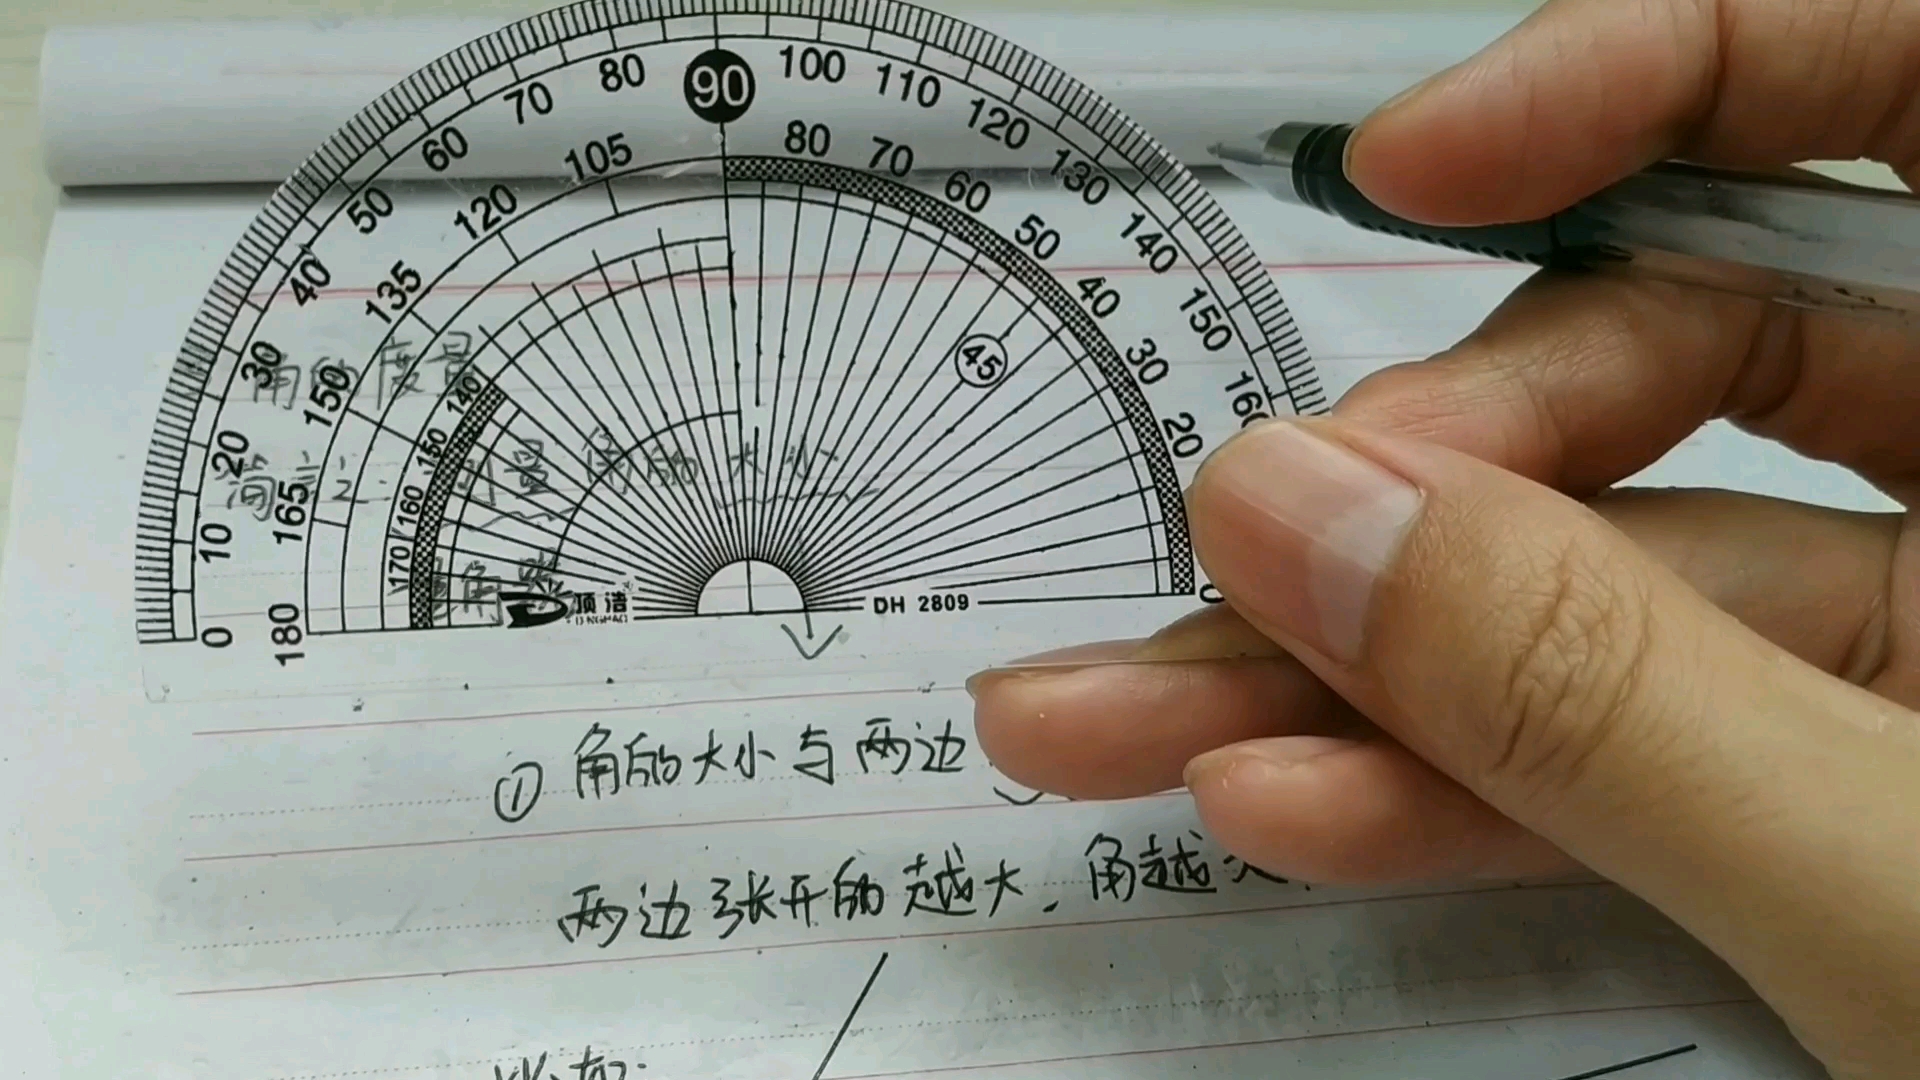 80 90 100 110 120 130 140 150
70 60 50 40 30 20 10 0
105 120 135 150 165 180
80 70 60 50 40 30 20
45
140 150 160 170
角的度量
量角的大小
顶洁
DH 2809
① 角的大小与两边
两边张开的越大，角越大
比如: